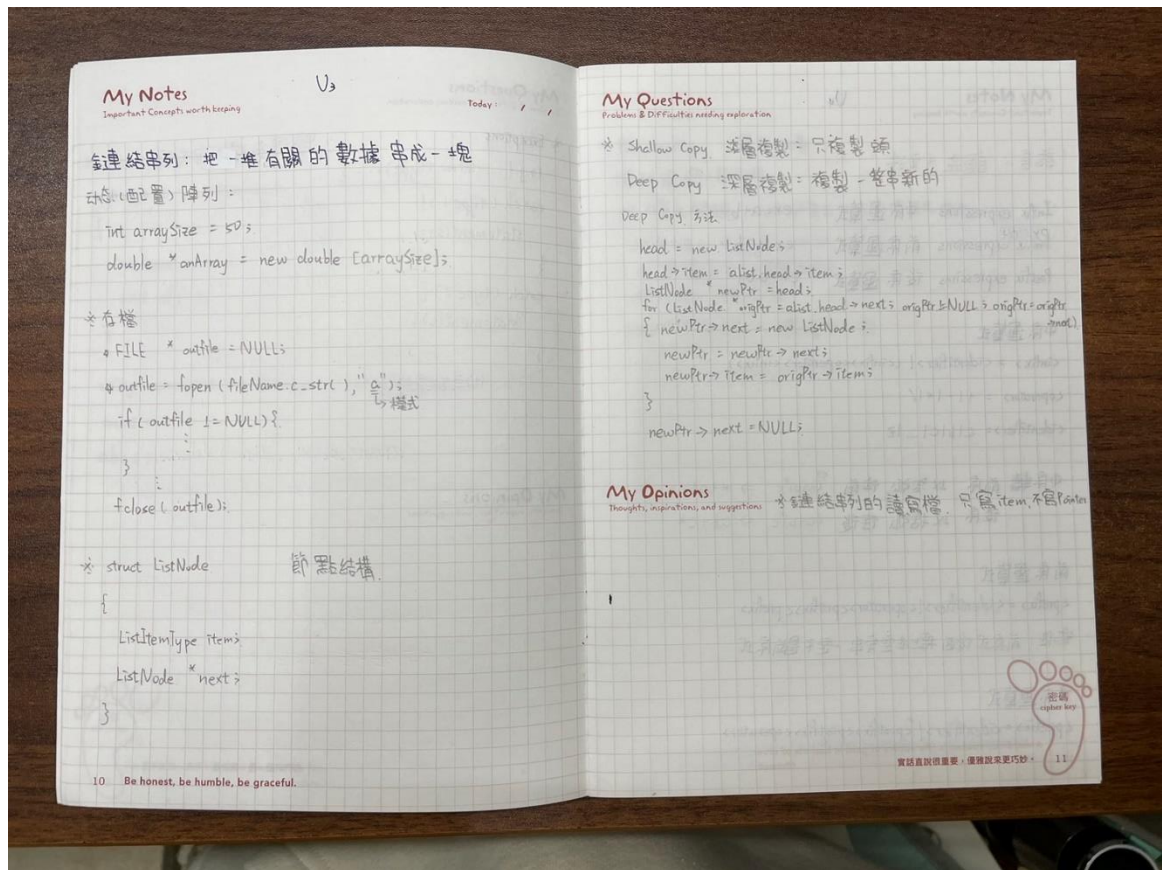 My Notes
Important Concepts worth keeping
U3
Today: / /
鏈結串列：把一堆有關的數據串成一塊
动态(配置)陣列：
int arraySize = 50;
double *anArray = new double [arraySize];
※存檔
FILE * outfile = NULL;
outfile = fopen (fileName.c_str( ), "a");
↳模式
if ( outfile != NULL) {
⋮
}
⋮
fclose ( outfile);
※ struct ListNode 節點結構.
{
ListItemType item;
ListNode *next;
}
10 Be honest, be humble, be graceful.
My Questions
Problems & Difficulties needing exploration
※ Shallow Copy 淺層複製：只複製頭
Deep Copy 深層複製：複製一整串新的
Deep Copy 方法
head = new ListNode;
head→item = alist.head→item;
ListNode * newPtr = head;
for (ListNode *origPtr = alist.head→next; origPtr != NULL; origPtr = origPtr
→next)
{ newPtr→next = new ListNode;
newPtr = newPtr→next;
newPtr→item = origPtr→item;
}
newPtr→next = NULL;
My Opinions
Thoughts, inspirations, and suggestions
※鏈結串列的讀寫檔，只寫item，不寫Pointer
密碼
cipher key
實話直說很重要，優雅說來更巧妙。 11